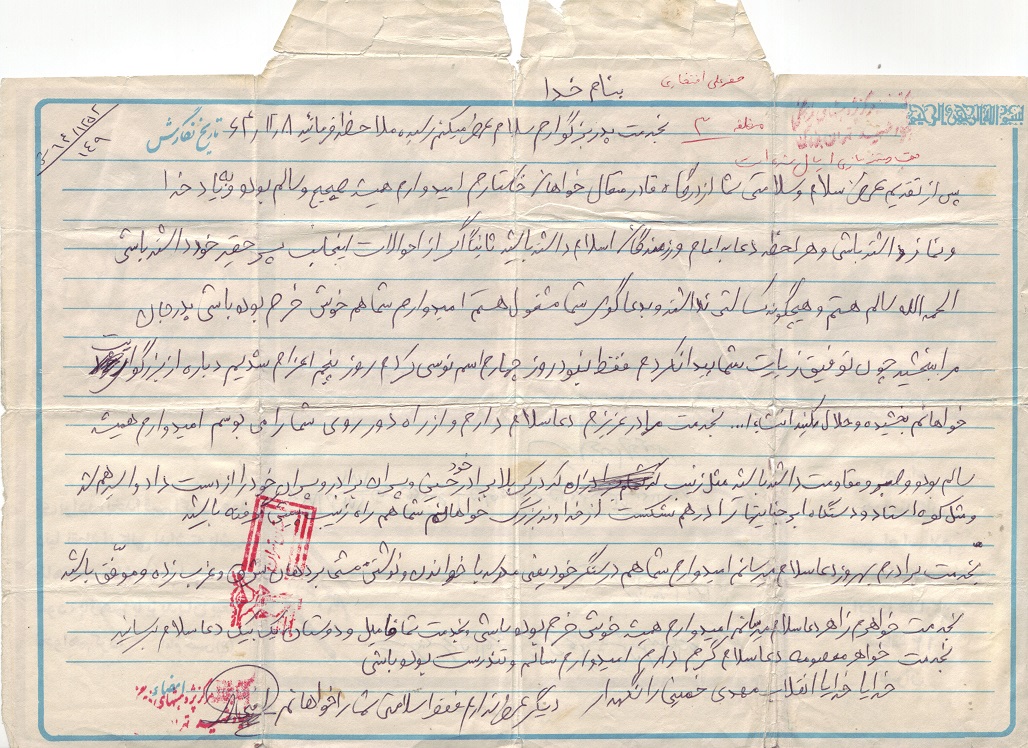 صفرعلی افتخاری
بنام خدا
تاریخ نگارش ۶۴٫۱۲٫۸
۱۲۵۲
۱۴۹
مظفر ۳
بخدمت پدر بزرگوارم سلام عرض میکنم امیده ملاحظه فرمائید
پس از تقدیم عرض سلام و سلامتی شما از درگاه قادر متعال خواهان و خواستارم امیدوارم همیشه صحیح و سالم بوده و بیاد خدا
و نماز داشته باشی و هر لحظه دعا به امام و رزمندگان اسلام داشته باشید ثانیاً اگر از احوالات اینجانب پسر حقیر خود داشته باشی
الحمدالله سالم هستم و هیچگونه کسالتی نداشته و بدعاگوی شما مشغول هستم امیدوارم شما هم خوش خرم بوده باشی پدر جان
مرا ببخشید چون توفیق زیارت شما پیدا نکردم فقط نبود روز چهارم اسم نویسی کردم روز پنجم اعزام شدیم دباره از بزرگواریت
خواهانم بخشیده و حلال بکنید انشاءا... بخدمت مادر عزیزم دعا سلام دارم و از راه دور روی شما را می بوسم امیدوارم همیشه
سالم بوده و صبر و مقاومت داشته باشید مثل زینب که در کربلا برادر خود حسین و پسران برادر و برادر خود را از دست داد و ایستاد
و مثل کوه استاد و دستگاه ابر جنایتها را درهم شکست از خداوند بزرگ خواهانم شما هم راه زینب گرفته باشد
بخدمت برادرم بهروز دعا سلام میرسانم امیدوارم شما هم در سنگر خود یعنی مدرسه با خواندن و نوشتن مشتی بر دهان و غرب زده و موفق باشید
بخدمت خواهرم زاهر دعا سلام میرسانم امیدوارم همیشه خوش خرم بوده باشی و بخدمت تمام فامیل و دوستان یک بیک دعا سلام برسانید
بخدمت خواهر معصومه دعا سلام گرم دارم امیدوارم سالم و تندرست بوده باشی
خدایا خدایا تا انقلاب مهدی خمینی را نگهدار
دیگر عرض ندارم فقط سلامتی شما را خواهانم
امضاء